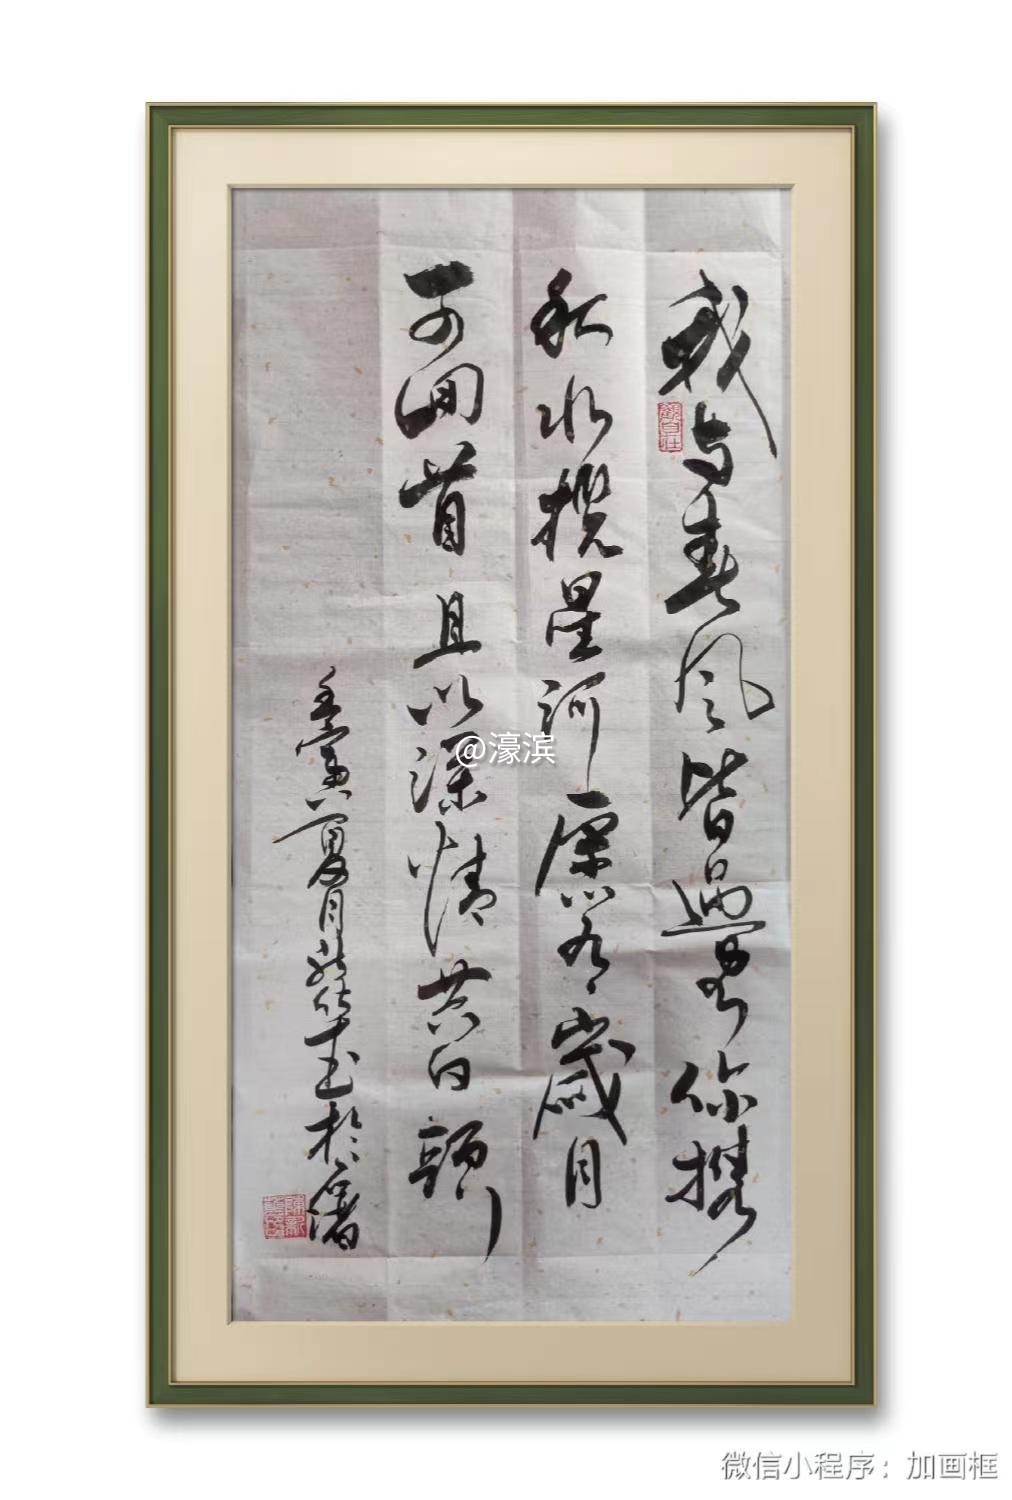 我与春风皆過客你携
秋水揽星河愿有歲月
可回首且以深情共白頭
壬寅夏月
於
觀自在
@濠滨
微信小程序：加画框